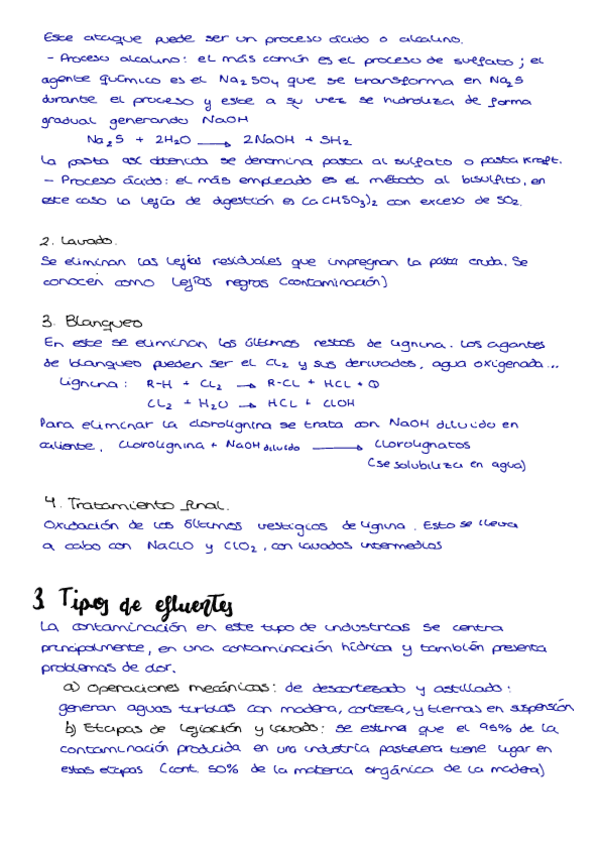 Este ataque puede ser un proceso ácido o alcalino.
- Proceso alcalino: el más común es el proceso de sulfato; el
agente químico es el Na2SO4 que se transforma en Na2S
durante el proceso y este a su vez se hidroliza de forma
gradual generando NaOH
Na2S + 2H2O → 2NaOH + SH2
La pasta así obtenida se denomina pasta al sulfato o pasta Kraft.
- Proceso ácido: el más empleado es el método al bisulfito, en
este caso la lejía de digestión es Ca(HSO3)2 con exceso de SO2.
2. Lavado.
Se eliminan las lejías residuales que impregnan la pasta cruda. Se
conocen como lejías negras (contaminación)
3. Blanqueo
En este se eliminan los últimos restos de lignina. Los agentes
de blanqueo pueden ser el Cl2 y sus derivados, agua oxigenada...
Lignina: R-H + CL2 → R-CL + HCL + Q
CL2 + H2O → HCL + CLOH
Para eliminar la clorolignina se trata con NaOH diluido en
caliente. Clorolignina + NaOH diluido → Clorolignatos
(se solubiliza en agua)
4. Tratamiento final.
Oxidación de los últimos vestigios de lignina. Esto se lleva
a cabo con NaClO y ClO2, con lavados intermedios
3 Tipos de efluentes
La contaminación en este tipo de industrias se centra
principalmente, en una contaminación hídrica y también presenta
problemas de olor.
a) Operaciones mecánicas: de descortezado y astillado:
generan aguas turbias con madera, corteza, y tierras en suspensión
b) Etapas de lejiación y lavado: se estima que el 95% de la
contaminación producida en una industria pastelera tiene lugar en
estas etapas (cont. 50% de la materia orgánica de la madera)